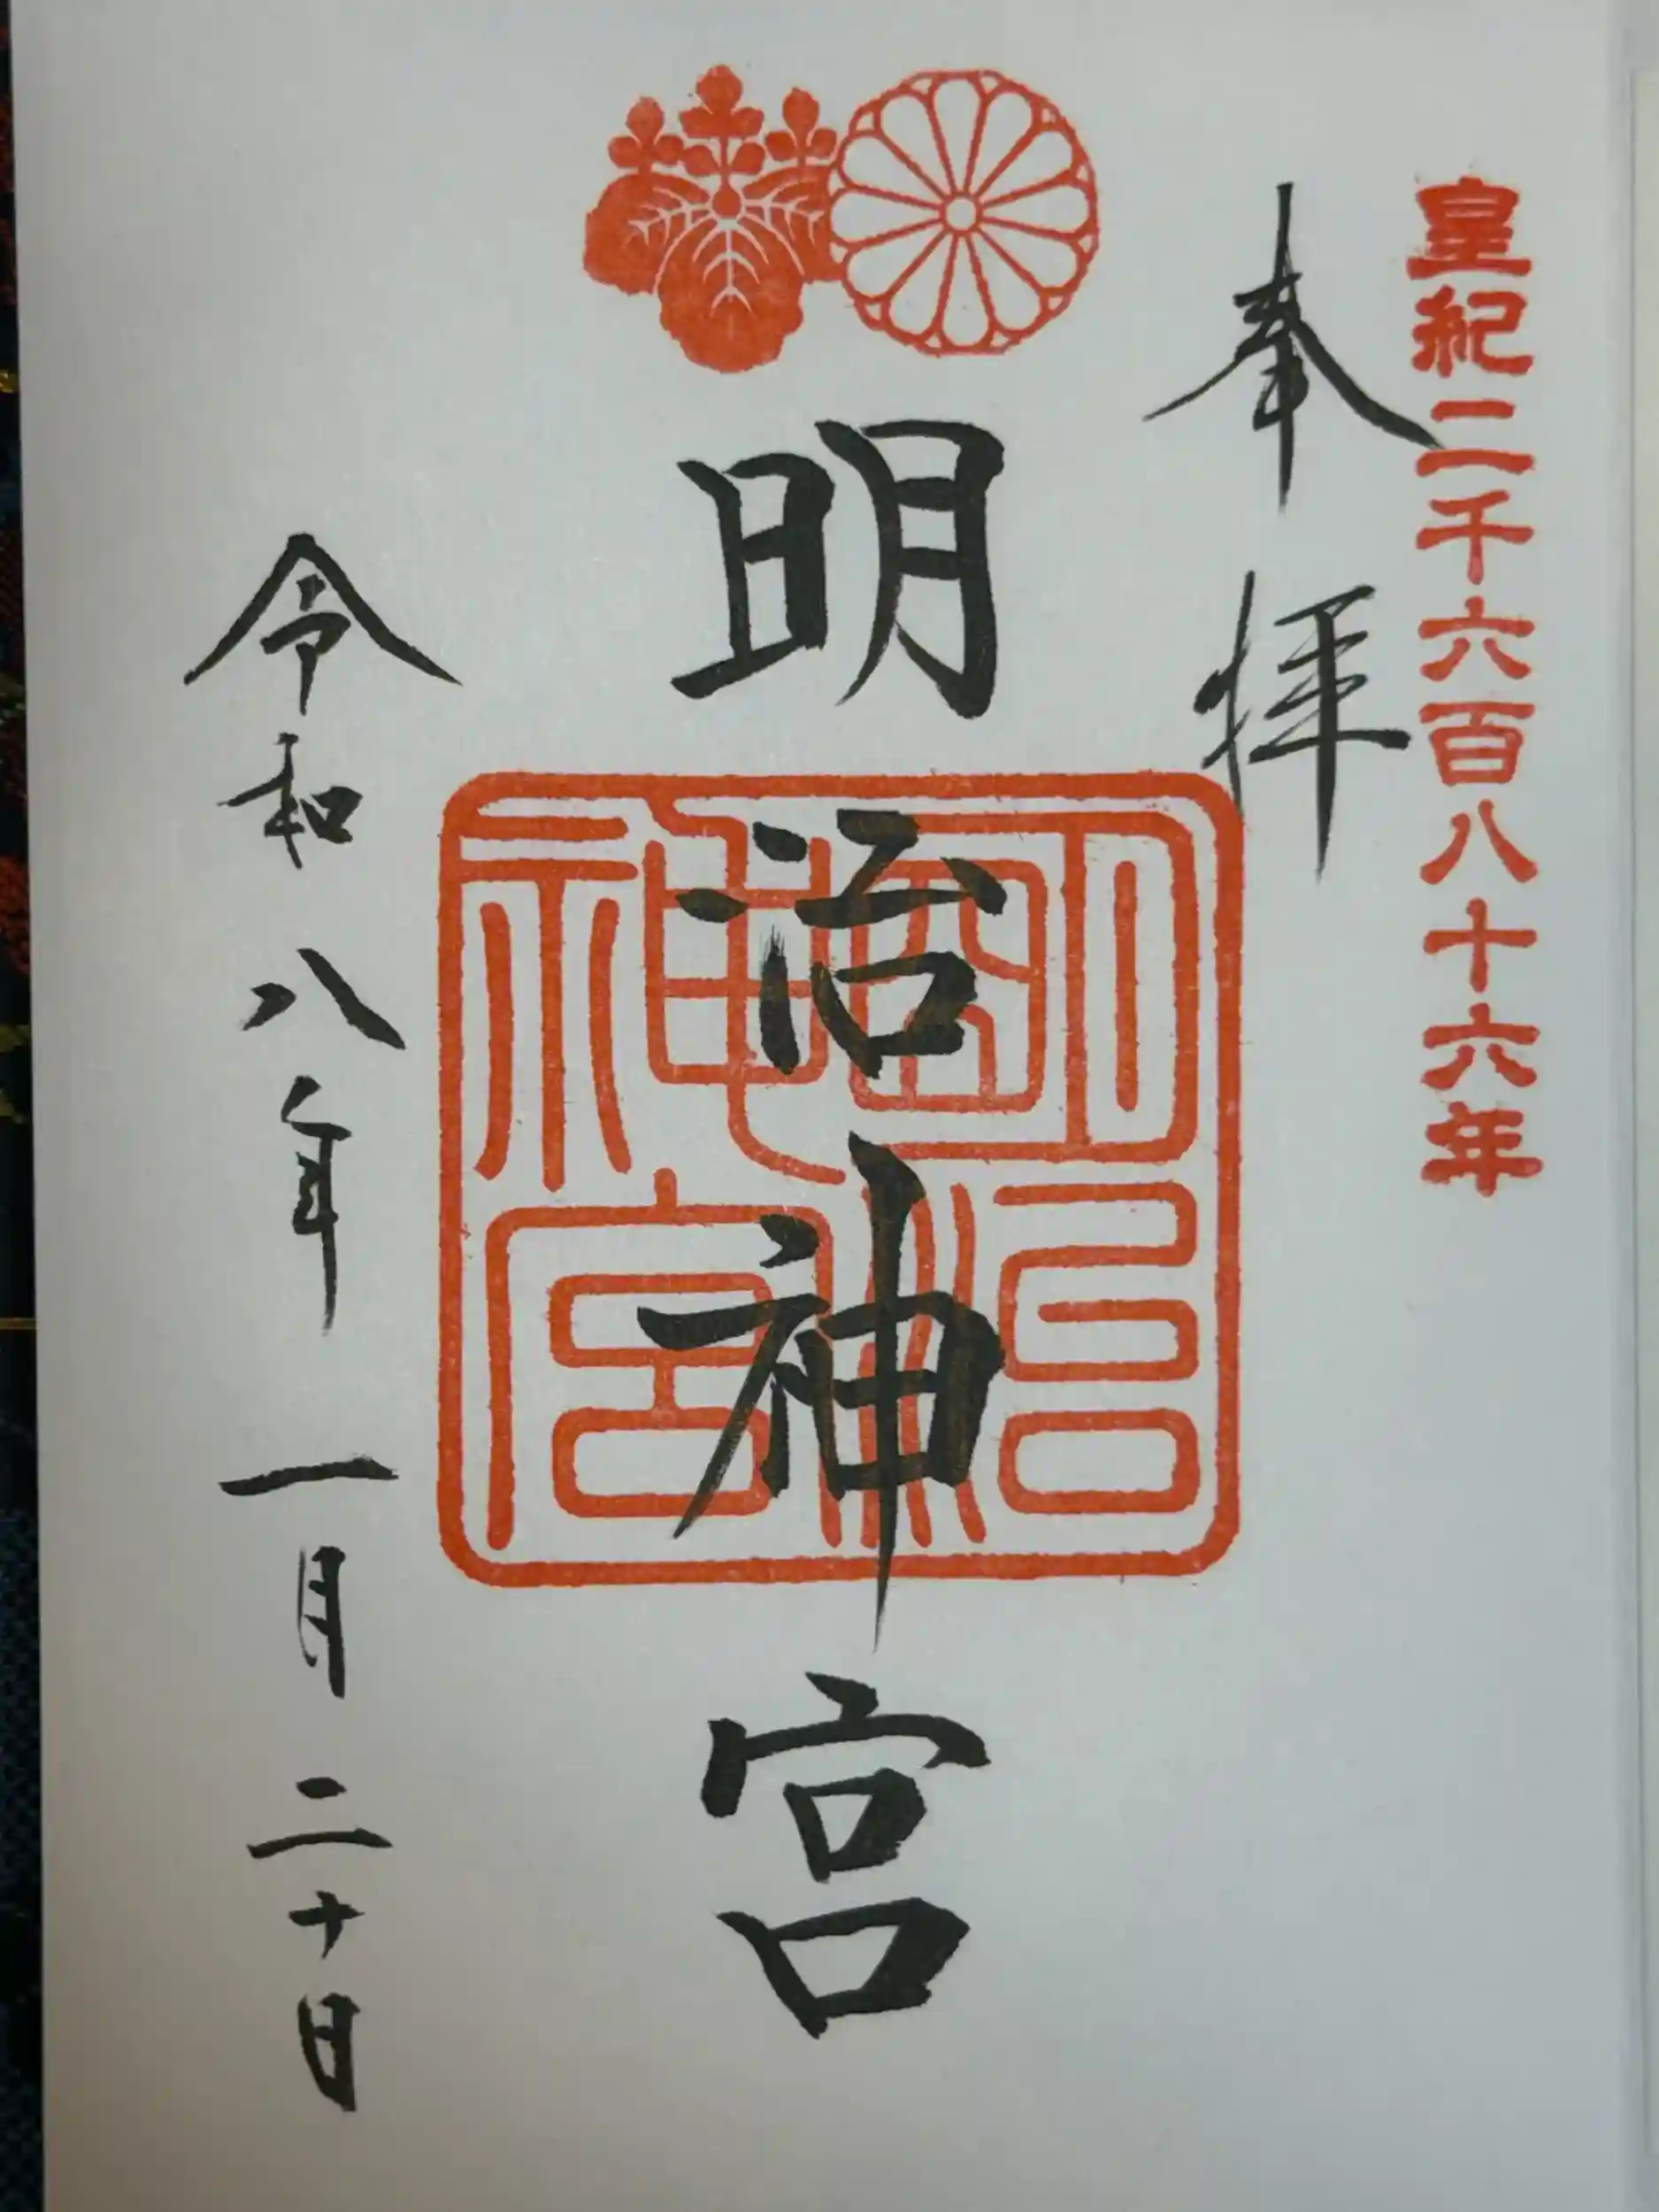 皇紀二千六百八十六年
奉拝
明治神宮
明治神宮
令和八年一月二十日